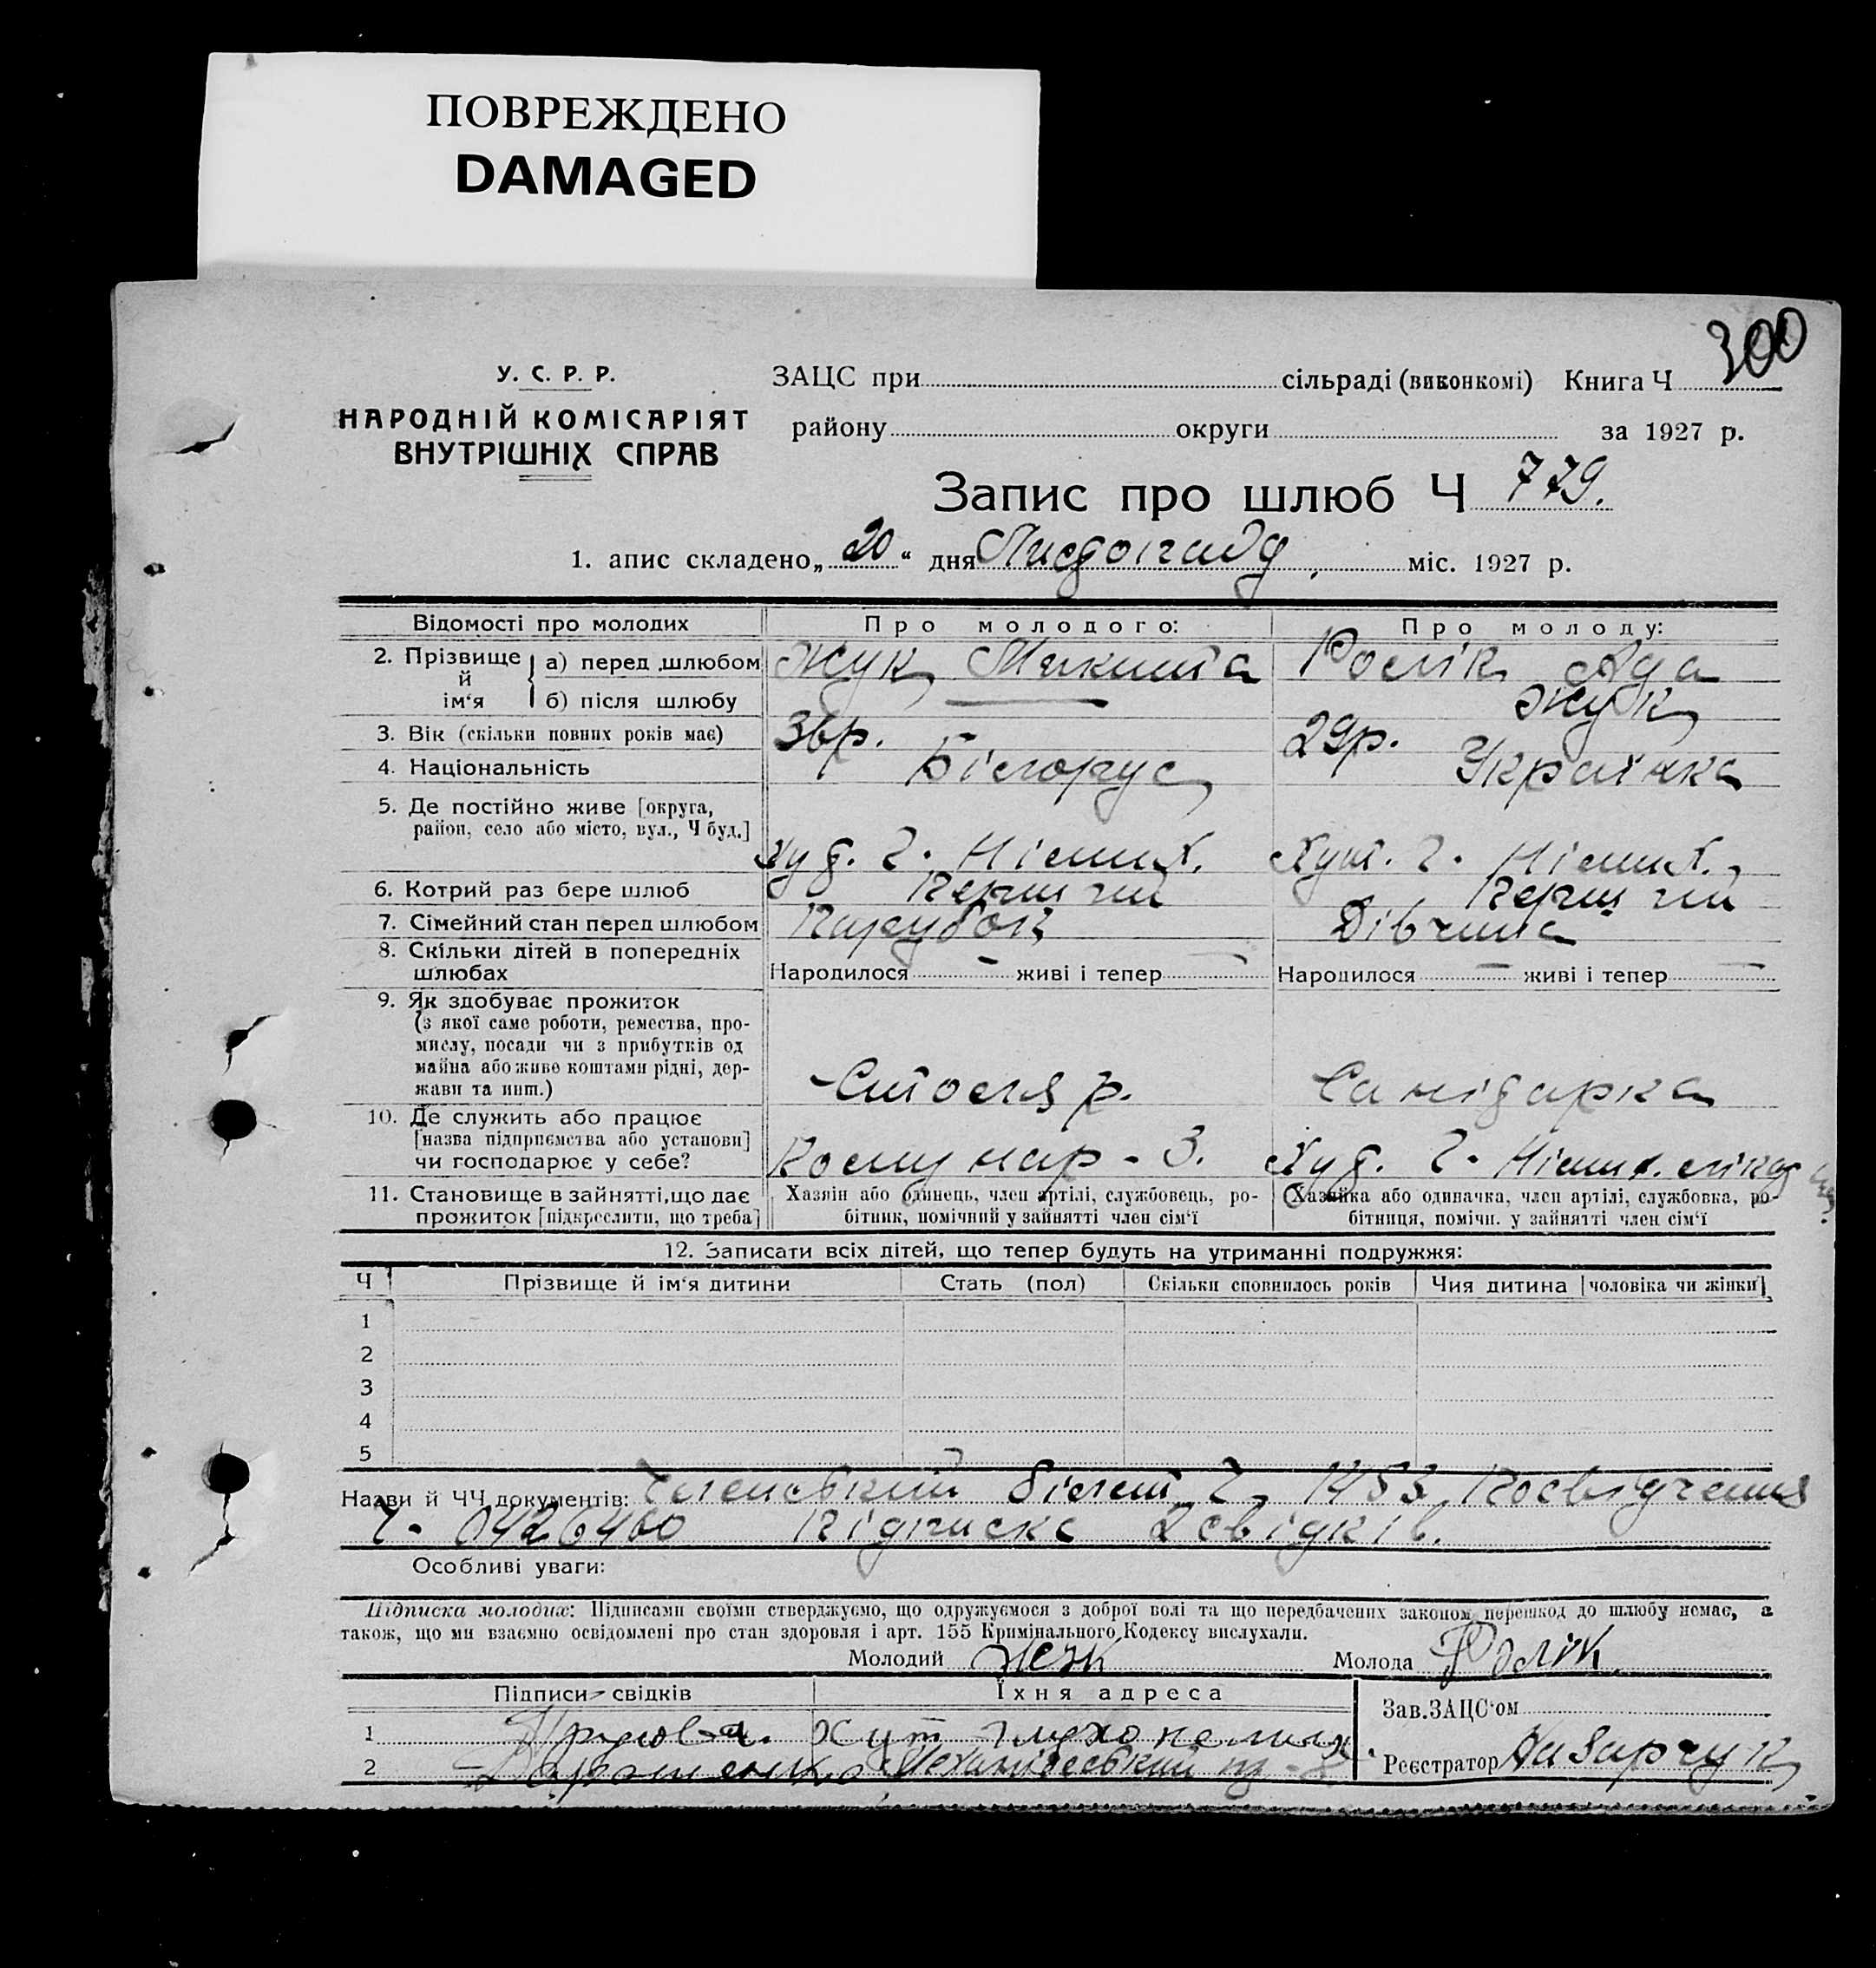 ПОВРЕЖДЕНО
DAMAGED
300
У. С. Р. Р.
НАРОДНІЙ КОМІСАРІЯТ
ВНУТРІШНІХ СПРАВ
ЗАЦС при сільраді (виконкомі) Книга Ч
району округи за 1927 р.
Запис про шлюб Ч 779.
1. апис складено „20“ дня Листопаду міс. 1927 р.
Відомості про молодих Про молодого: Про молоду:
2. Прізвище й ім‘я а) перед шлюбом Жук Микита Ролік Ада
б) після шлюбу Жук
3. Вік (скільки повних років має) 36р. 29р.
4. Національність Білорус Українка
5. Де постійно живе [округа,
район, село або місто, вул., Ч буд.] Хут. Г. Німих. Хут. Г. Німих.
6. Котрий раз бере шлюб Перший Перший
7. Сімейний стан перед шлюбом Парубок Дівчина
8. Скільки дітей в попередніх
шлюбах Народилося — живі і тепер — Народилося — живі і тепер —
9. Як здобуває прожиток
(з якої саме роботи, ремества, про-
мислу, посади чи з прибутків од
майна або живе коштами рідні, дер-
жави та инш.) Столяр. Санітарка
10. Де служить або працює
[назва підприємства або установи]
чи господарює у себе? Комунар - З. Хут. Г. Німих.
11. Становище в зайнятті, що дає
прожиток [підкреслити, що треба]
Хазяїн або одинець, член артілі, службовець, ро-
бітник, помічний у зайнятті член сім‘ї
Хазяйка або одиначка, член артілі, службовка, ро-
бітниця, помічн. у зайнятті член сім‘ї
12. Записати всіх дітей, що тепер будуть на утриманні подружжя:
Ч Прізвище й ім‘я дитини Стать (пол) Скільки сповнилось років Чия дитина [чоловіка чи жінки]
1
2
3
4
5
Назви й ЧЧ документів: Членський білет Ч. 1453, Посвідчення
Ч. 0426460 Підписка 2 свідків.
Особливі уваги:
Підписка молодих: Підписами своїми стверджуємо, що одружуємося з доброї волі та що передбачених законом перешкод до шлюбу немає, а
також, що ми взаємно освідомлені про стан здоровля і арт. 155 Кримінального Кодексу вислухали.
Молодий Жук Молода Ролік
Підписи свідків Їхня адреса
Зав. ЗАЦС‘ом
1 хут глухонемих
2
Реєстратор Назарчук